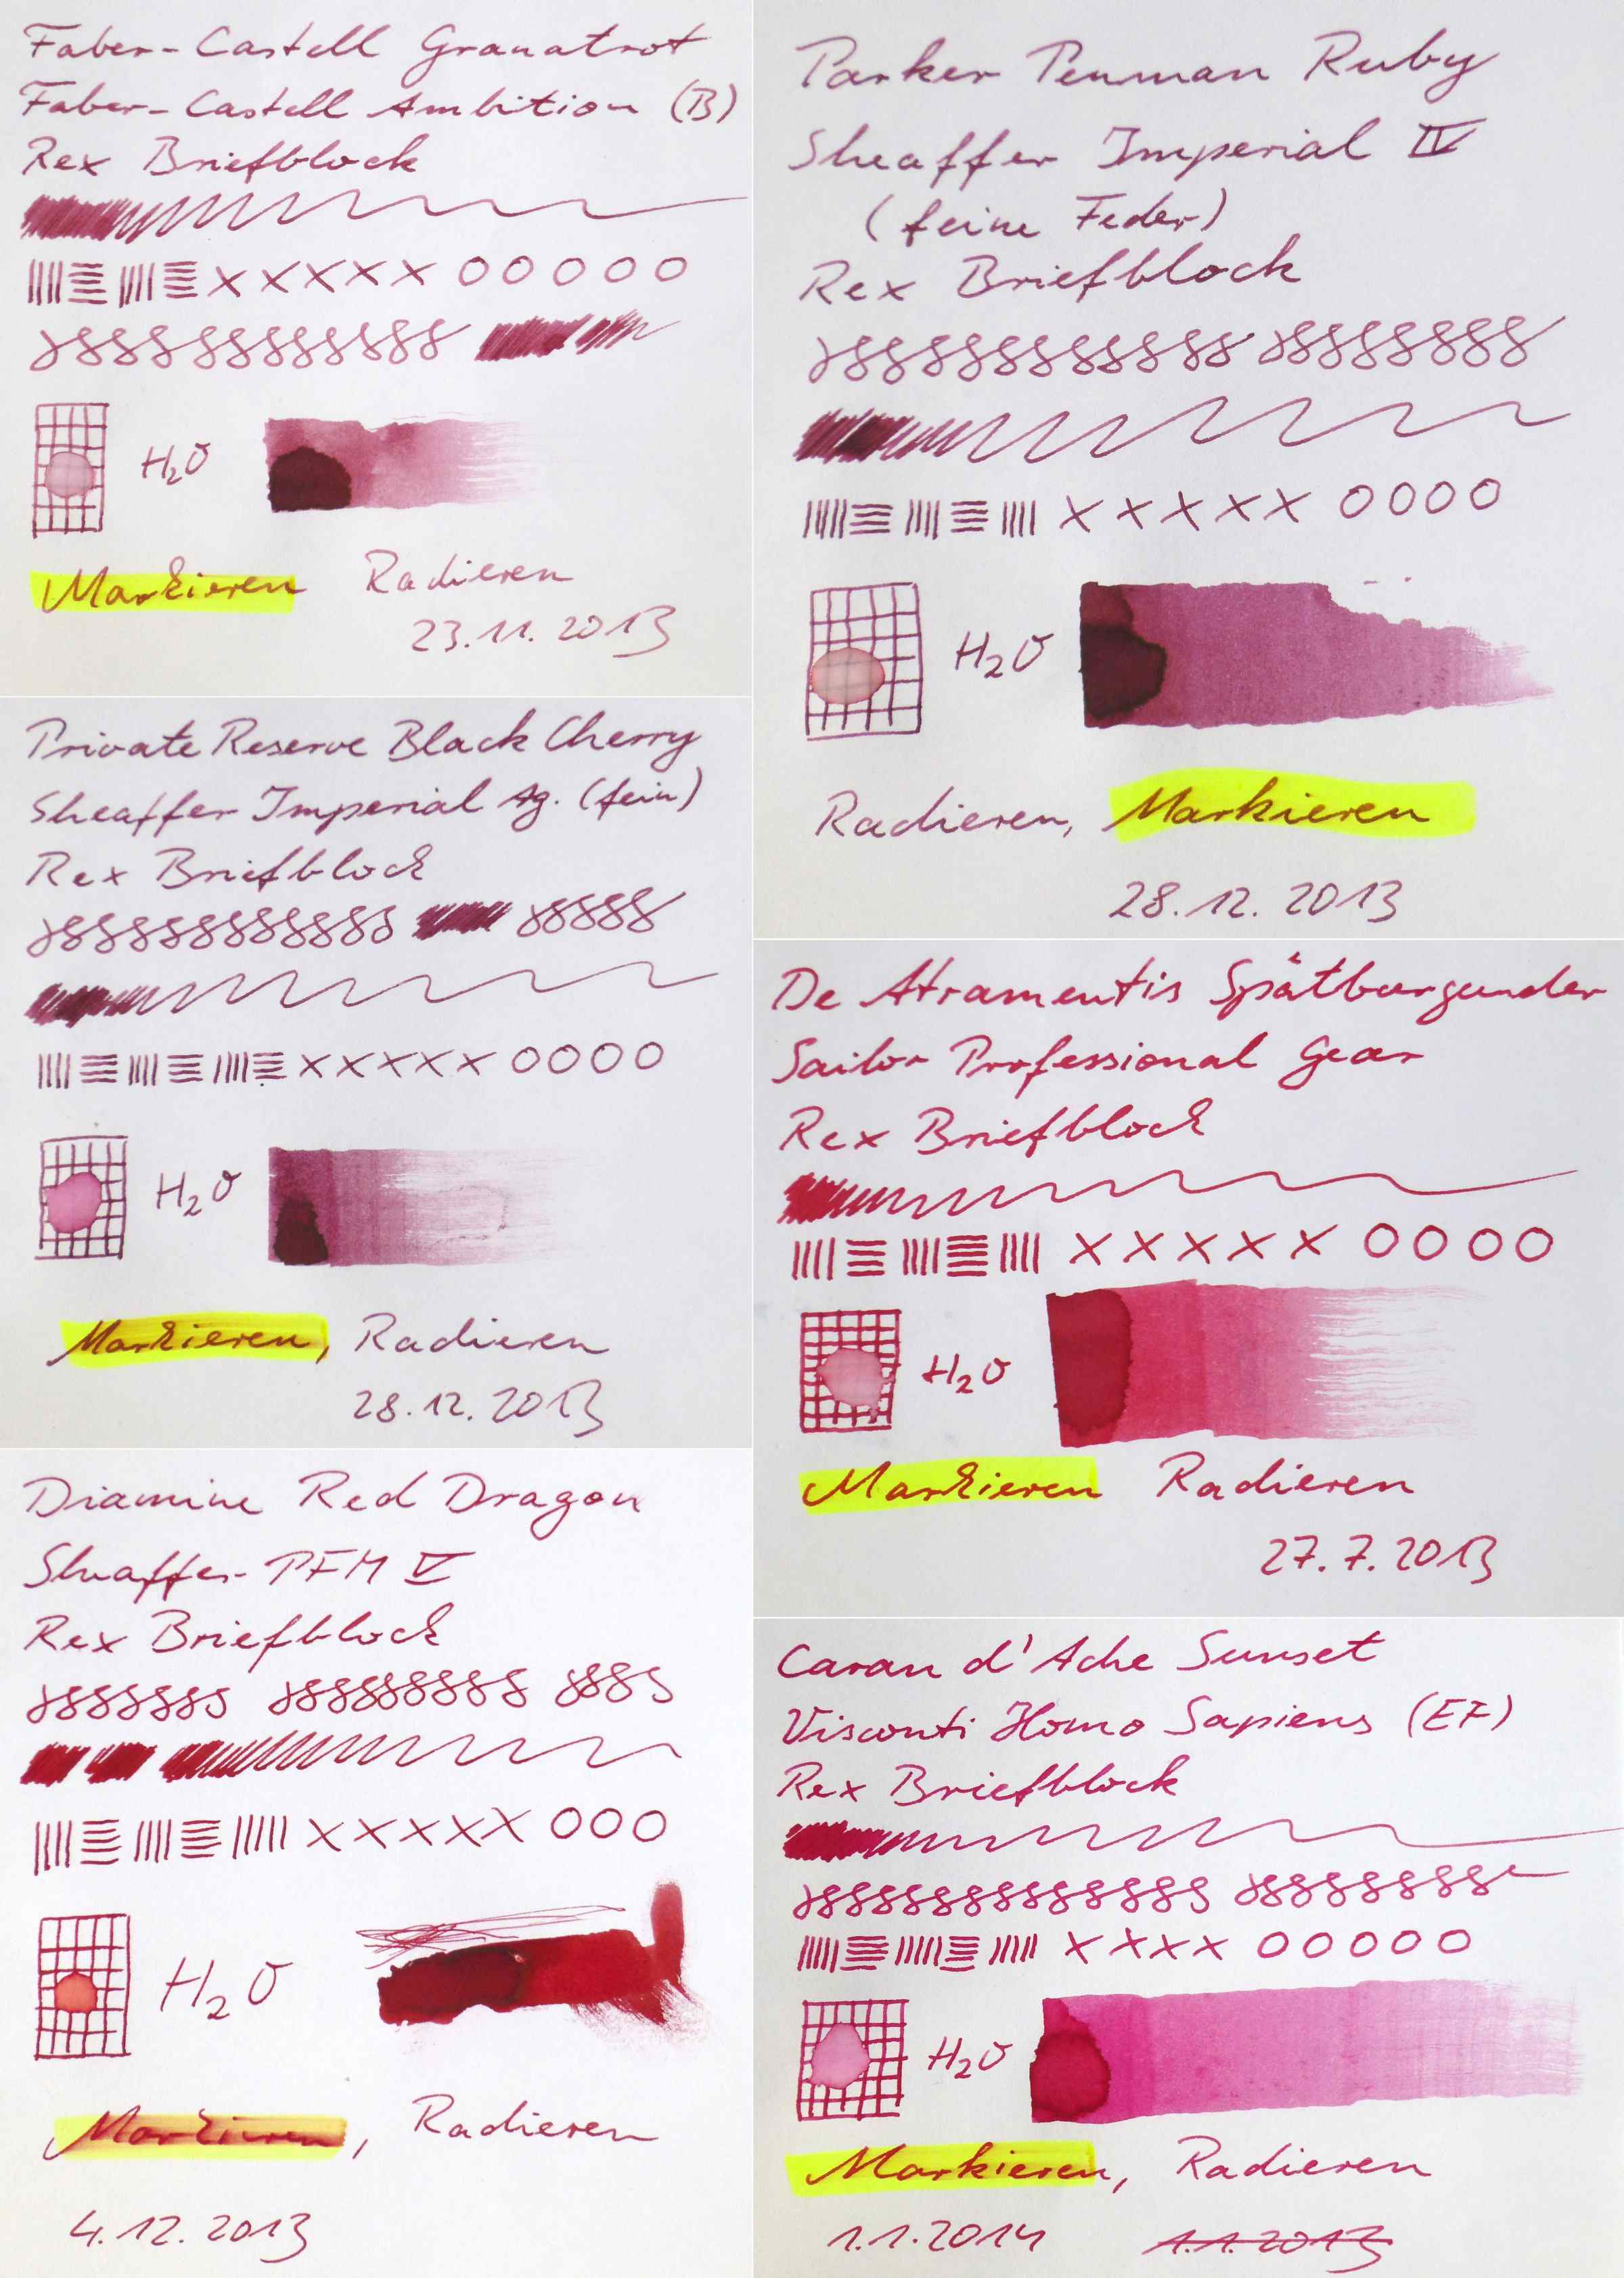 Faber-Castell Granatrot
Faber-Castell Ambition (B)
Rex Briefblock
H₂O
Markieren Radieren
23.11.2013
Private Reserve Black Cherry
Sheaffer Imperial Ag. (fein)
Rex Briefblock
H₂O
Markieren, Radieren
28.12.2013
Diamine Red Dragon
Sheaffer PFM V
Rex Briefblock
H₂O
Markieren, Radieren
4.12.2013
Parker Penman Ruby
Sheaffer Imperial IV
(feine Feder)
Rex Briefblock
H₂O
Radieren, Markieren
28.12.2013
De Atramentis Spätburgunder
Sailor Professional Gear
Rex Briefblock
H₂O
Markieren Radieren
27.7.2013
Caran d'Ache Sunset
Visconti Homo Sapiens (EF)
Rex Briefblock
H₂O
Markieren, Radieren
1.1.2014 1.1.2013